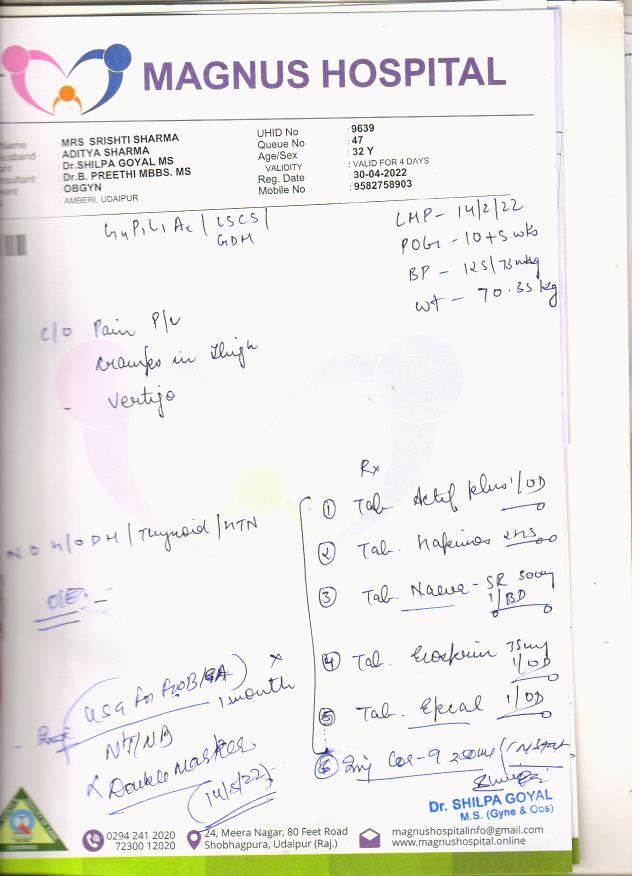 MAGNUS HOSPITAL
Name
MRS SRISHTI SHARMA
usband
ADITYA SHARMA
Dr.SHILPA GOYAL MS
nsultant
Dr.B. PREETHI MBBS. MS
ment
OBGYN
AMBERI, UDAIPUR
UHID No : 9639
Queue No : 47
Age/Sex : 32 Y
VALIDITY : VALID FOR 4 DAYS
Reg. Date : 30-04-2022
Mobile No : 9582758903
LSCS
GDM
LMP - 14/2/22
POG - 10+5 wks
BP - 125/75
wt - 70.35 kg
C/O Pain P/V
cramps in thigh
- vertigo
Rx
① Tab 1/OD
② Tab.
③ Tab. - SR 300mg
1/BD
④ Tab. Ecosprin 75mg
1/OD
⑤ Tab. 1/OD
⑥ Inj
N O H/O DM/Thyroid/HTN
O/E:-
USG for
1 month
NT/NB
Double Marker
(14/5/22)
Dr. SHILPA GOYAL
M.S. (Gyne & Obs)
0294 241 2020
72300 12020
24, Meera Nagar, 80 Feet Road
Shobhagpura, Udaipur (Raj.)
magnushospitalinfo@gmail.com
www.magnushospital.online